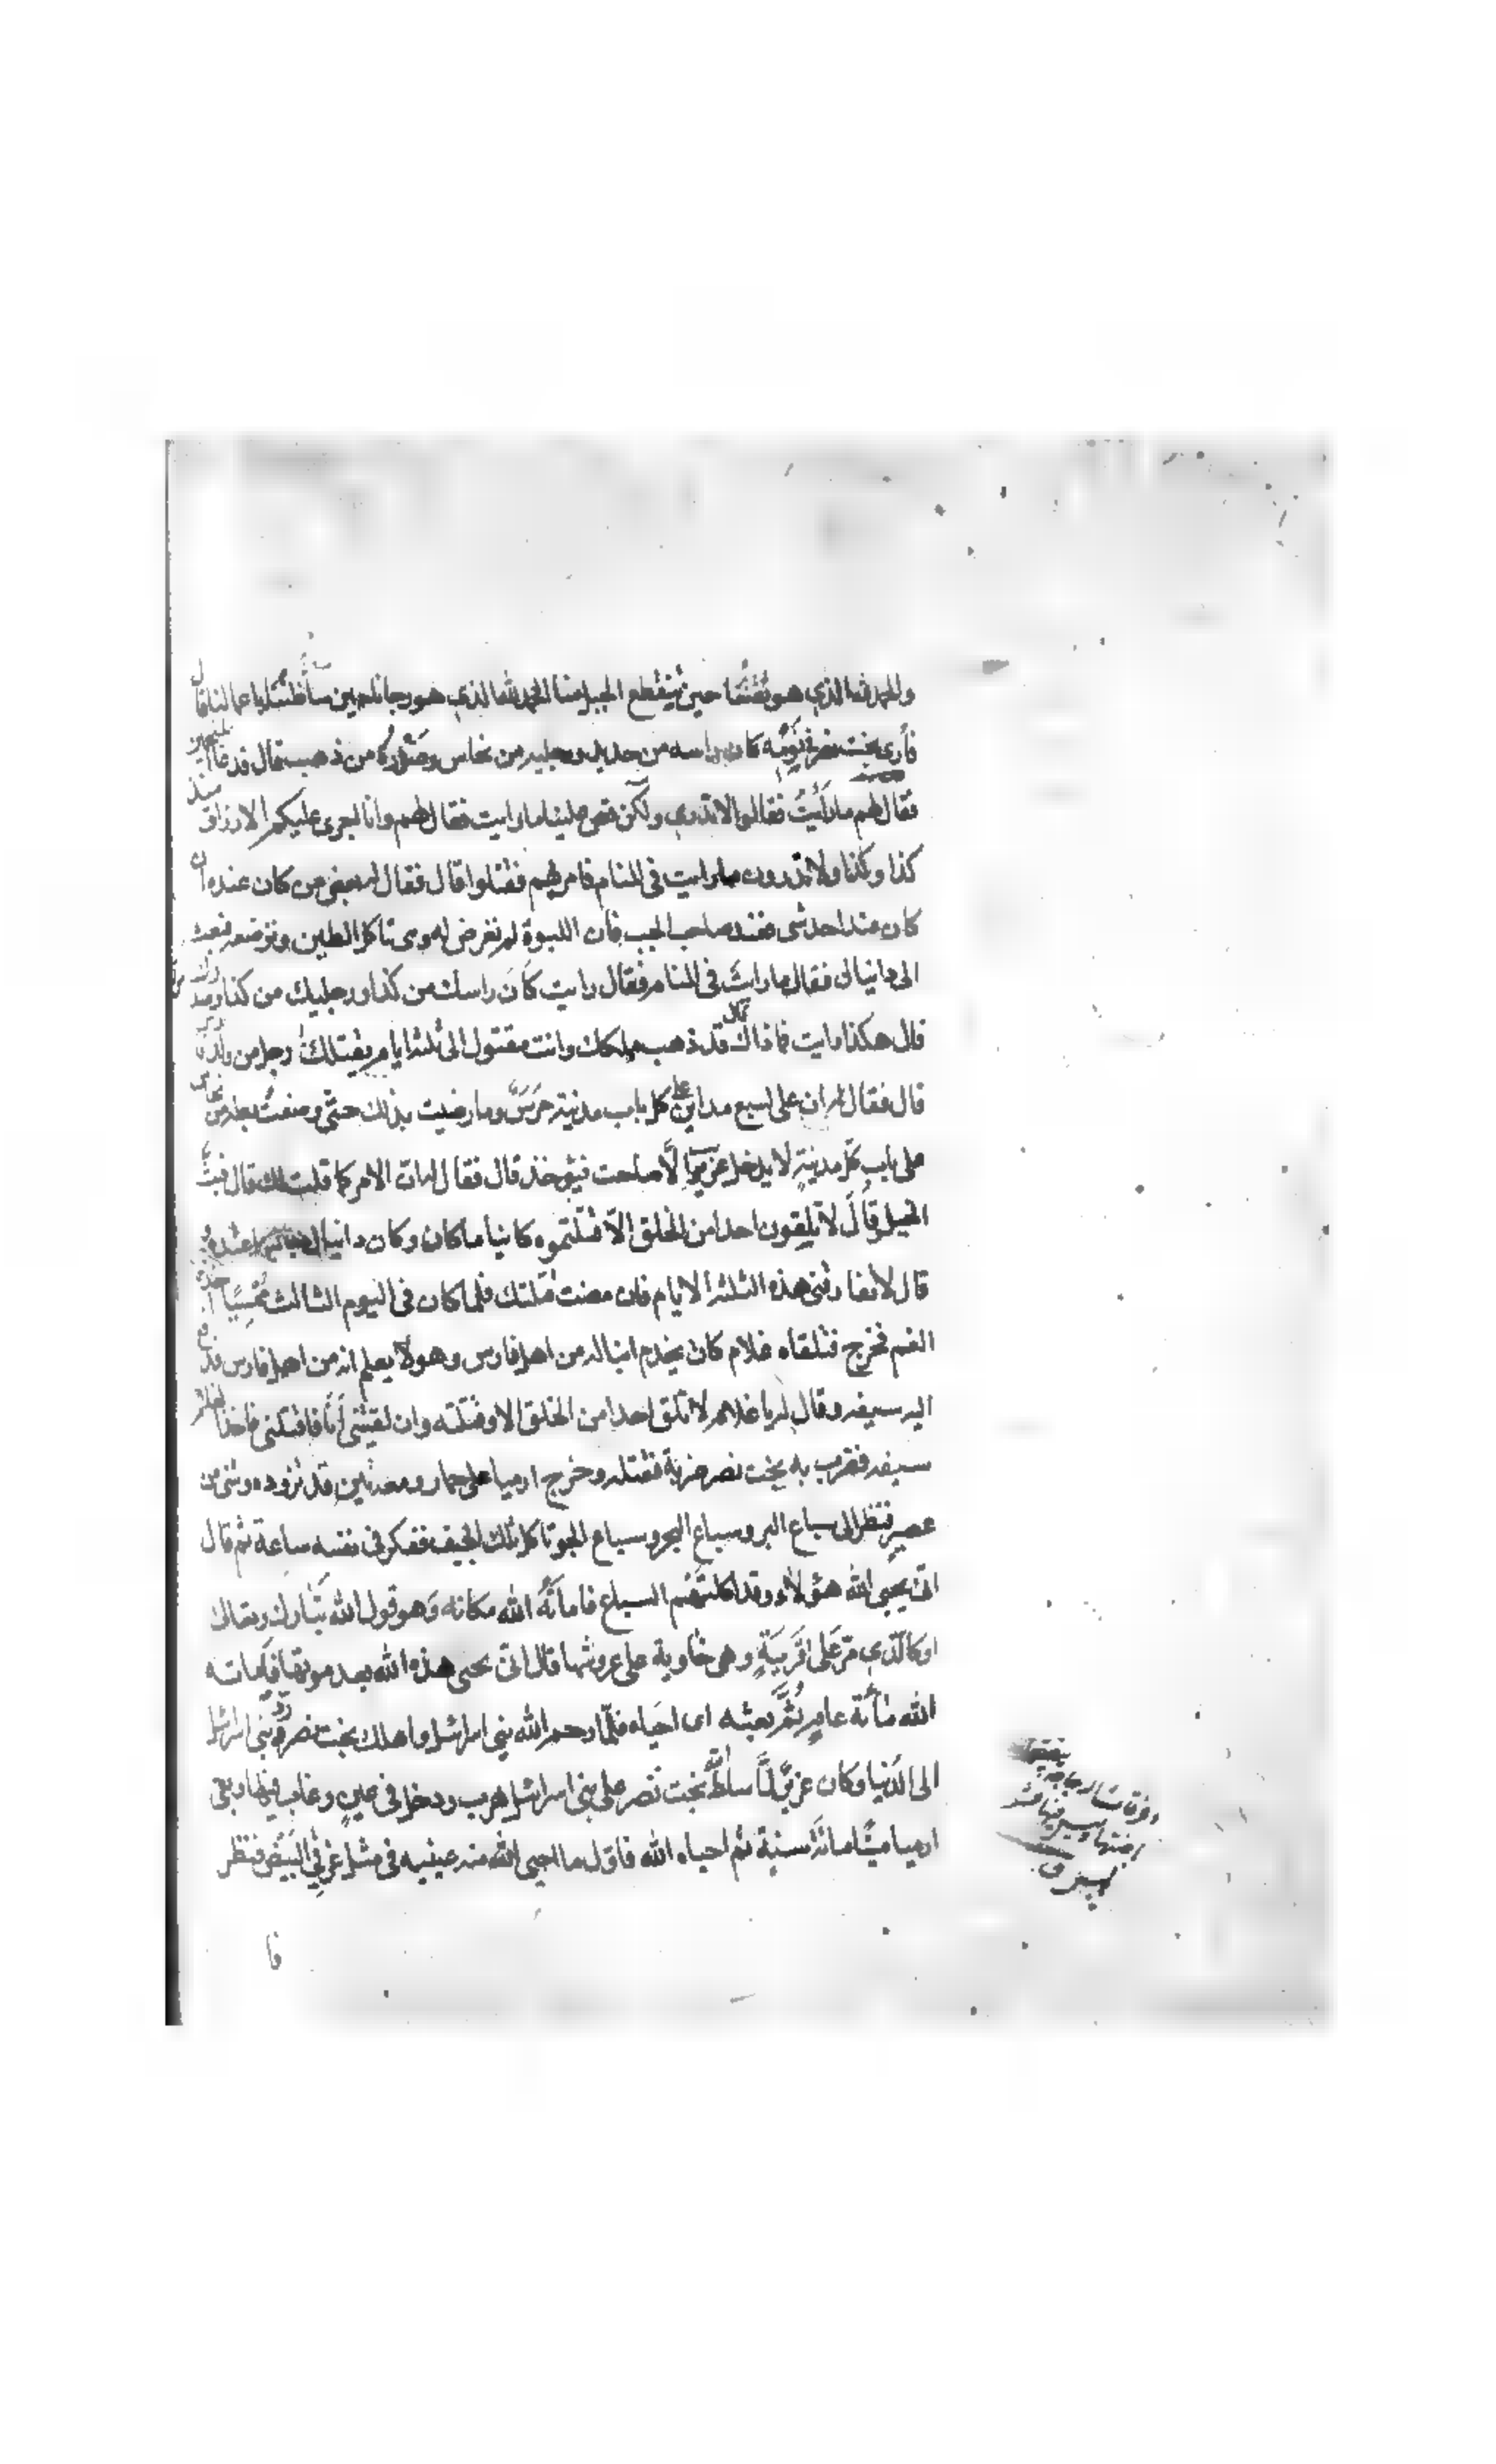 والحمد لله الذي هو ثقتنا حين ينقطع الحيل منا الحمد لله الذي هو رجانا حين ساء ظننا باعمالنا قال
فأرى بخت نصر في نومه كان راسه من حديد ورجليه من نحاس وصدره من ذهب قال فدعا المنجمين
فقال لهم ما رَأَيْتُ فقالوا لا ندري ولكن قص علينا ما رايت فقال لهم وانا اجرى عليكم الارزاق منذ
كذا وكذا ولا تدرون ما رايت فى المنام فامر بهم فقتلوا قال فقال له بعض من كان عنده ان
كان عند احد شى فعند صاحب الجب فان اللبوة لم تعرض له وهى تاكل الطين وترضعه فبعث
الى دانيال فقال ما رايت فى المنام فقال رايت كَانَ راسك من كذا ورجليك من كذا وصدرك من
قال هكذا رايت فما ذاك قال قد ذهب ملكك وانت مقتول الى ثلثة ايام يقتلك رجل من ولد فارس
قال فقال له ان على لسبع مداين على كل باب مدينة حرس وما رضيت بذلك حتى وضعت بطة من نحاس
على باب كل مدينة لا يدخل غريب الا صاحت فيؤخذ قال فقال له ان الامر كما قلت لك قال فبث
الخيل وقال لا تلقون احدا من الخلق الا قتلتموه كائنا ما كان وكان دانيال جالسا عنده و
قال لا تفارقنى هذه الثلثة الايام فان مضت قتلتك فلما كان فى اليوم الثالث ممسيا اخذه
الغم فخرج فتلقاه غلام كان يخدم ابنا له من اهل فارس وهو لا يعلم انه من اهل فارس فدفع
اليه سيفه وقال له يا غلام لا تلق احدا من الخلق الا وقتلته وان لقيتنى أنا فاقتلنى فاخذ الغلام
سيفه فضرب به بخت نصر ضربة فقتله وخرج ارميا على حمار ومعه تين قد تزوده وشى من
عصير فنظر الى سباع البر وسباع البحر وسباع الجو تاكل تلك الجيف ففكر فى نفسه ساعة ثم قال
انى يحيى الله هؤلاء وقد اكلتهم السباع فاماته الله مكانه وهو قول الله تبارك وتعالى
او كالّذي مرّ على قَريَةٍ وهى خاوية على عروشها قال انى يحيى هذه الله بعد موتها فاماته
الله مائة عام ثم بعثه اى احياه فلما رحم الله بنى اسرائيل واهلك بخت نصر رد بنى اسرائيل
الى الدنيا وكان عزير لما سلط الله بخت نصر على بنى اسرائيل هرب ودخل فى عين وغاب فيها وبقى
ارميا ميتا مائة سنة ثم احياه الله فاول ما احيى الله منه عينيه فى مثل غرقئ البيض فنظر
فا